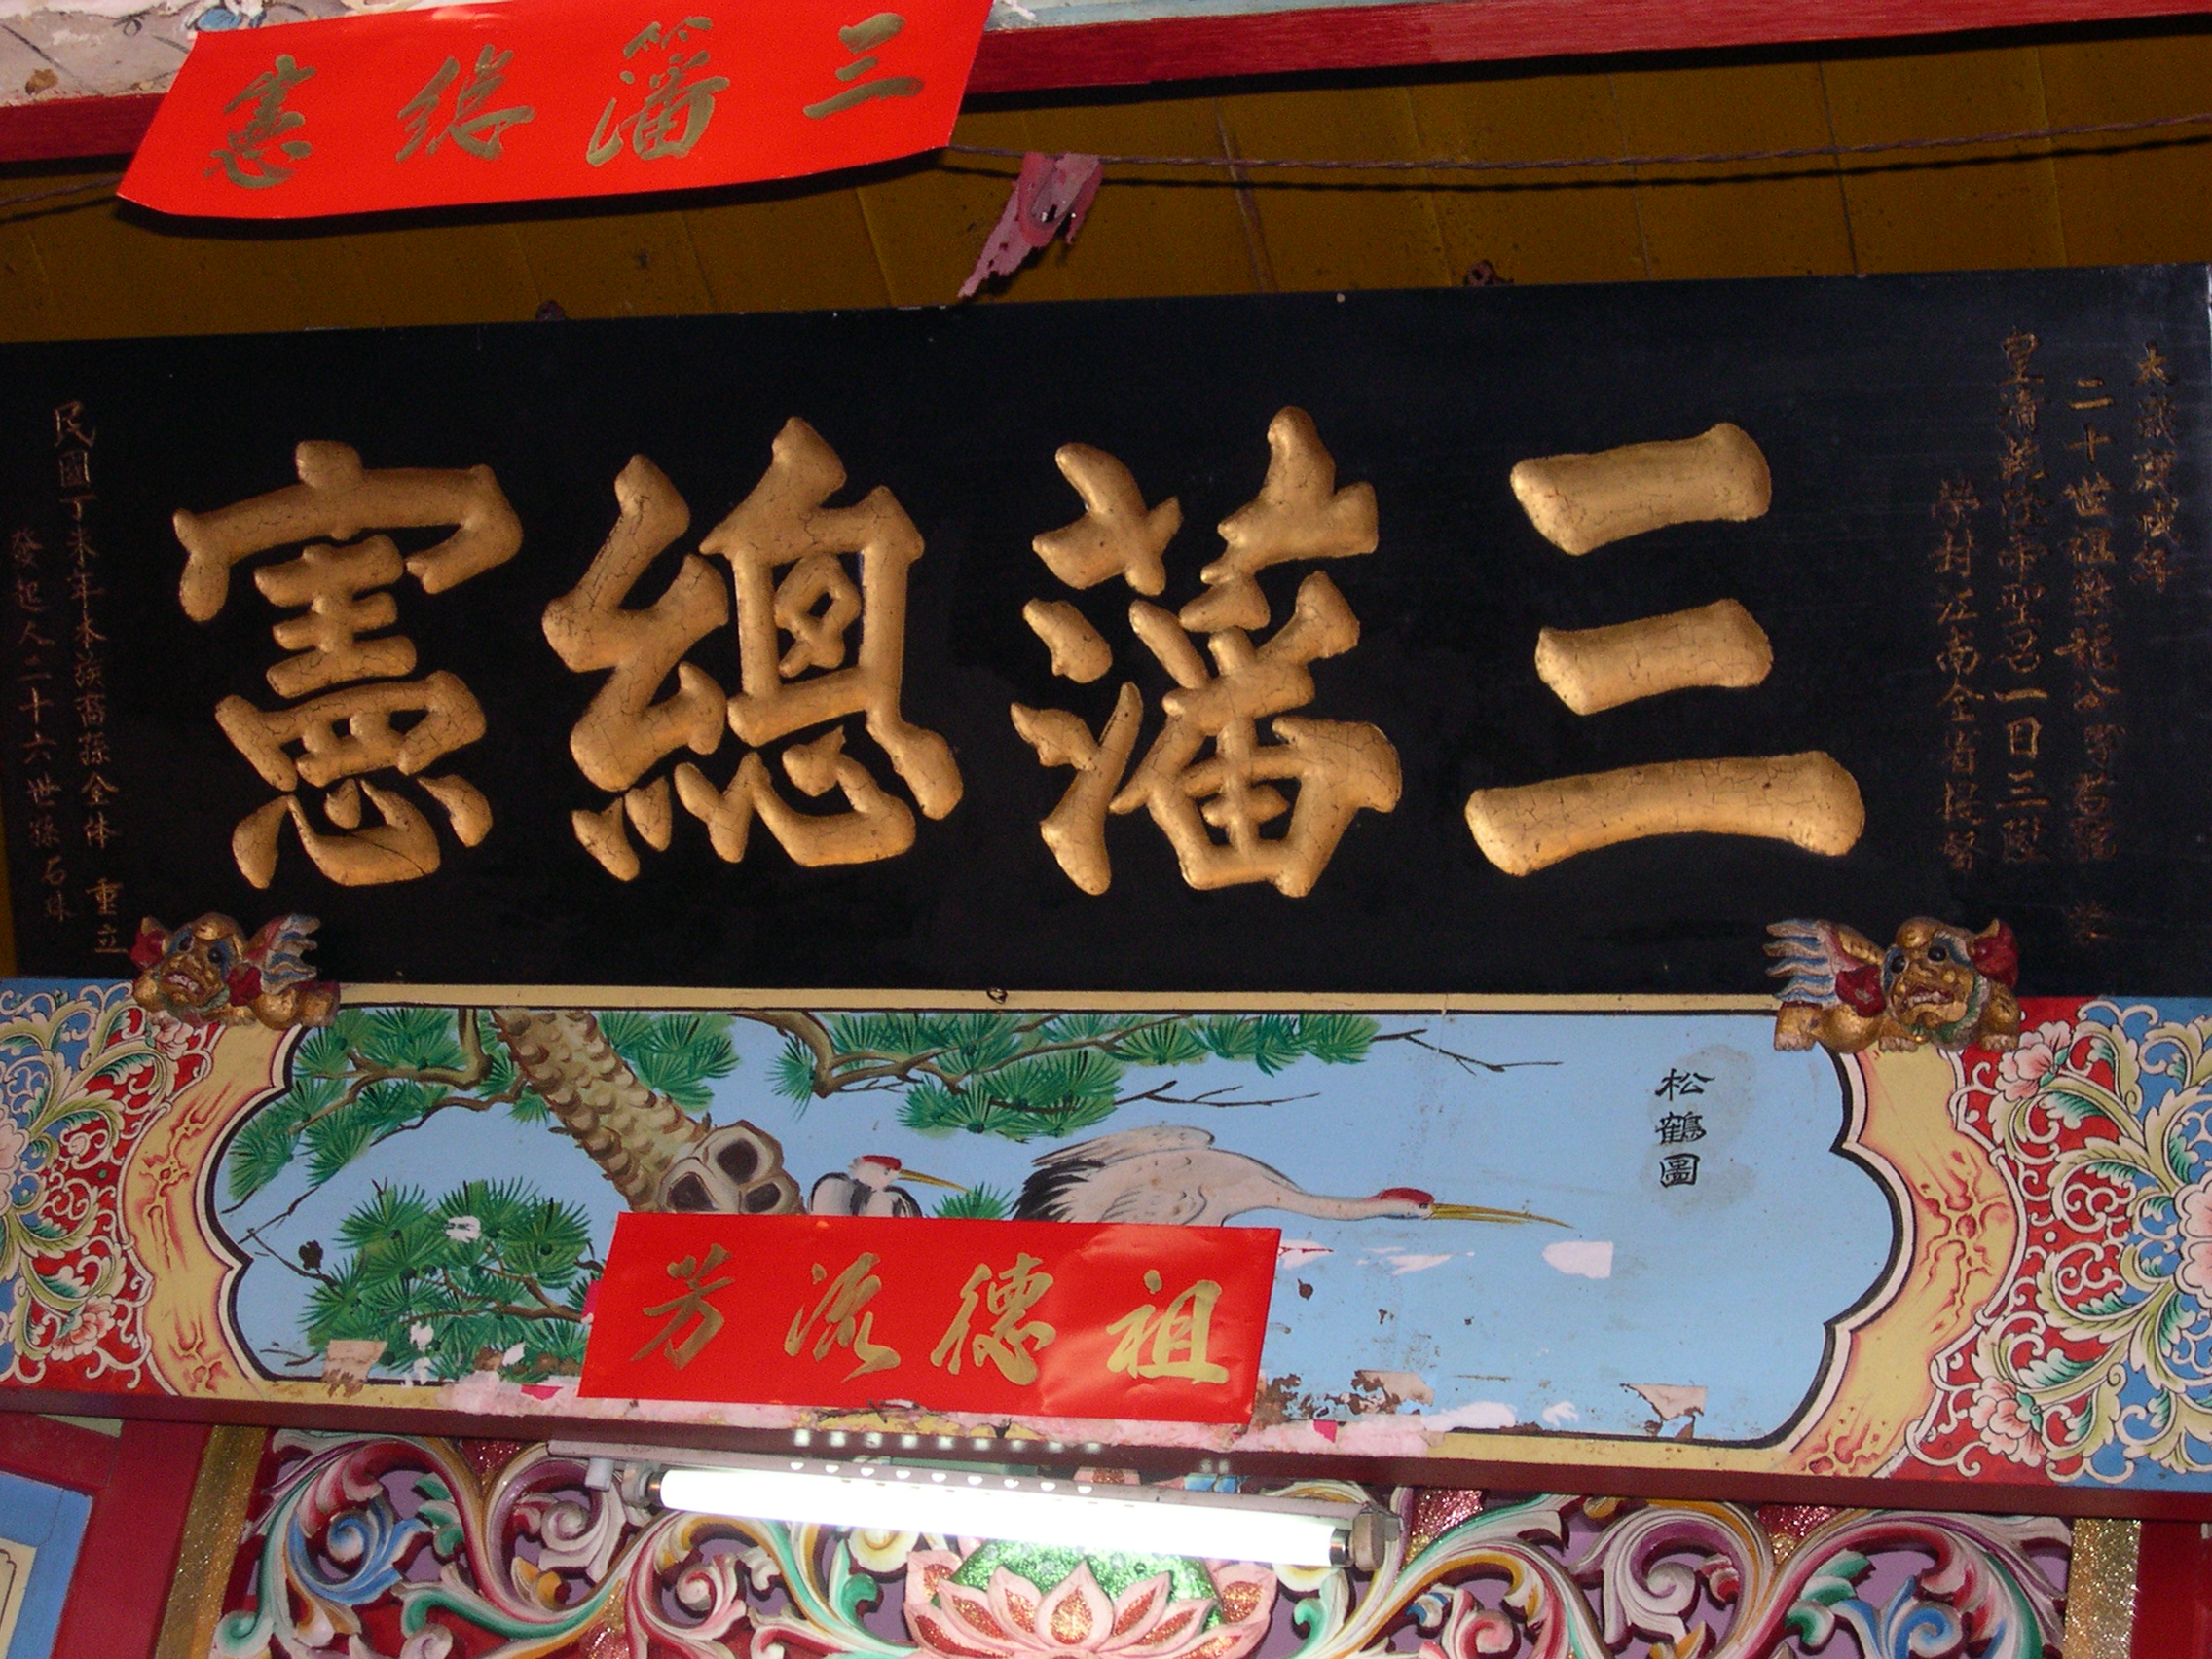 三籓總憲
三藩總憲
二十世祖
皇清乾隆帝聖召一日三陞
學封江南全省提督
民國丁未年本族裔孫全体 重立
發起人二十六世孫石珠
松鶴圖
祖德流芳